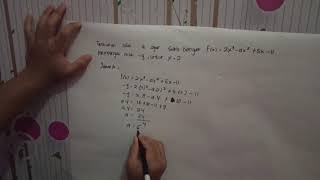 Tentukan nilai a agar suku banyak f(x) = 2x³ - ax² + 5x - 11
mempunyai nilai -9 untuk x = 2
Jawab :
f(x) = 2x³ - ax² + 5x - 11
-9 = 2(2)³ - a(2)² + 5(2) - 11
-9 = 2.8 - a.4 + 10 - 11
a4 = 16 + 10 - 11 + 9
a4 = 24
a = 24
4
a = 6